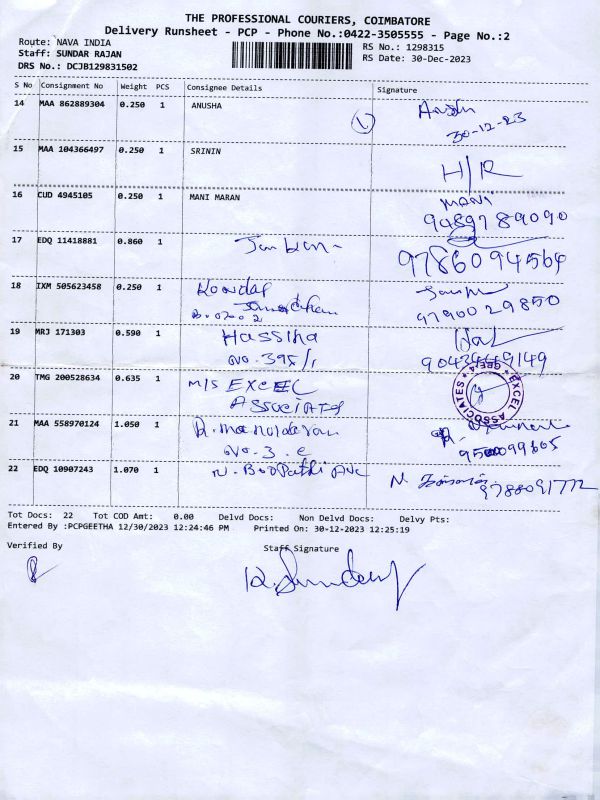 THE PROFESSIONAL COURIERS, COIMBATORE
Delivery Runsheet - PCP - Phone No.:0422-3505555 - Page No.:2
Route: NAVA INDIA
RS No.: 1298315
Staff: SUNDAR RAJAN
RS Date: 30-Dec-2023
DRS No.: DCJB129831502
S No Consignment No Weight PCS Consignee Details Signature
14 MAA 862889304 0.250 1 ANUSHA
30-12-23
15 MAA 104366497 0.250 1 SRININ H/R
16 CUD 4945105 0.250 1 MANI MARAN MANI
9489789090
17 EDQ 11418881 0.860 1
9786094564
18 IXM 505623458 0.250 1
9790029850
19 MRJ 171303 0.590 1 Hassina
No. 39x/1
20 TMG 200528634 0.635 1 M/S EXCEL
Associats
EXCEL ASSOCIATES
21 MAA 558970124 1.050 1
No. 3. e
22 EDQ 10907243 1.070 1 N. BooPathi
9788091772
Tot Docs: 22 Tot COD Amt: 0.00 Delvd Docs: Non Delvd Docs: Delvy Pts:
Entered By :PCPGEETHA 12/30/2023 12:24:46 PM Printed On: 30-12-2023 12:25:19
Verified By
Staff Signature